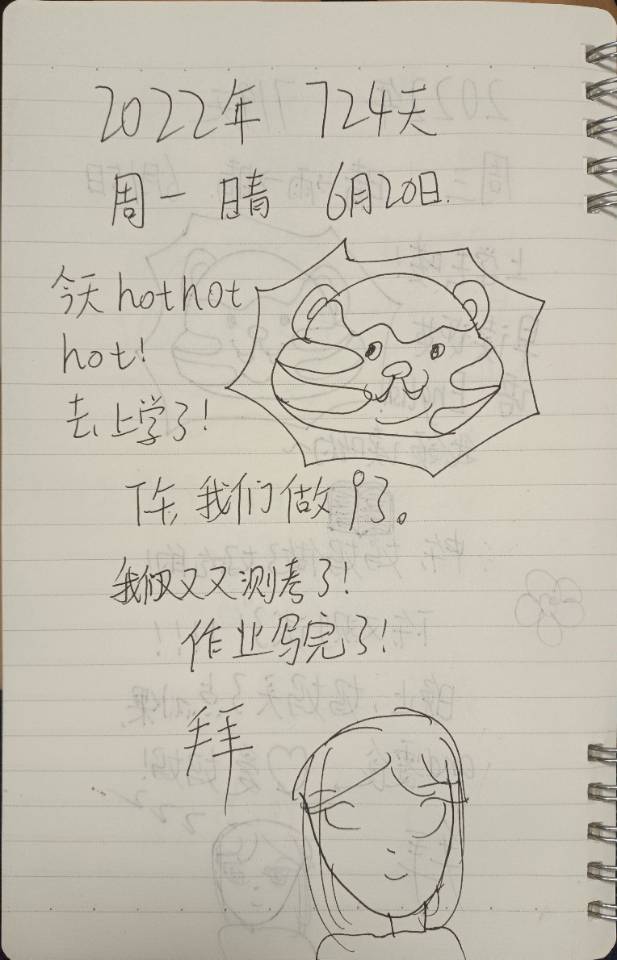 2022年 724天
周一 晴 6月20日.
今天 hot hot
hot!
去上学了!
下午, 我们做 了。
我们又又又测考了!
作业写完了!
拜